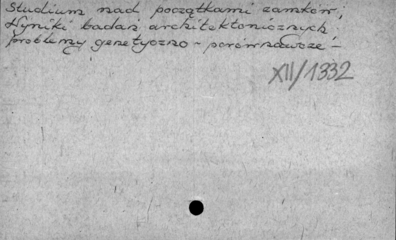 Studium nad początkami zamków;
Wyniki badań architektonicznych;
problemy genetyczno-porównawcze -
XII/1332